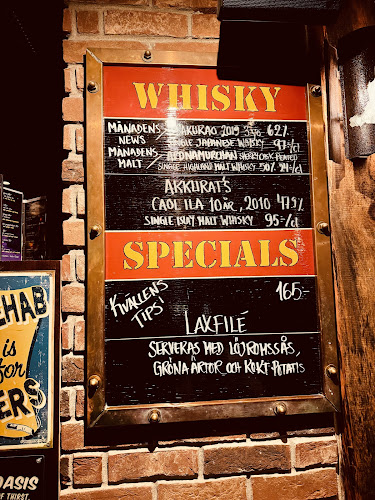 WHISKY
MÅNADENS SAKURAO 2019 3 yo. 62%
NEWS SINGLE JAPANESE WHISKY 97:-/cl
MÅNADENS ARDNAMURCHAN SHERRY CASK PEATED
MALT SINGLE HIGHLAND MALT WHISKY 50%
AKKURATS
CAOL ILA 10 ÅR, 2010 47,9%
SINGLE ISLAY MALT WHISKY 95:-/cl
SPECIALS
KVÄLLENS 165:-
TIPS!
LAXFILÉ
SERVERAS MED LÖJROMSSÅS,
GRÖNA ÄRTOR OCH KOKT POTATIS
REHAB
is
for
OASIS
OF THIRST.